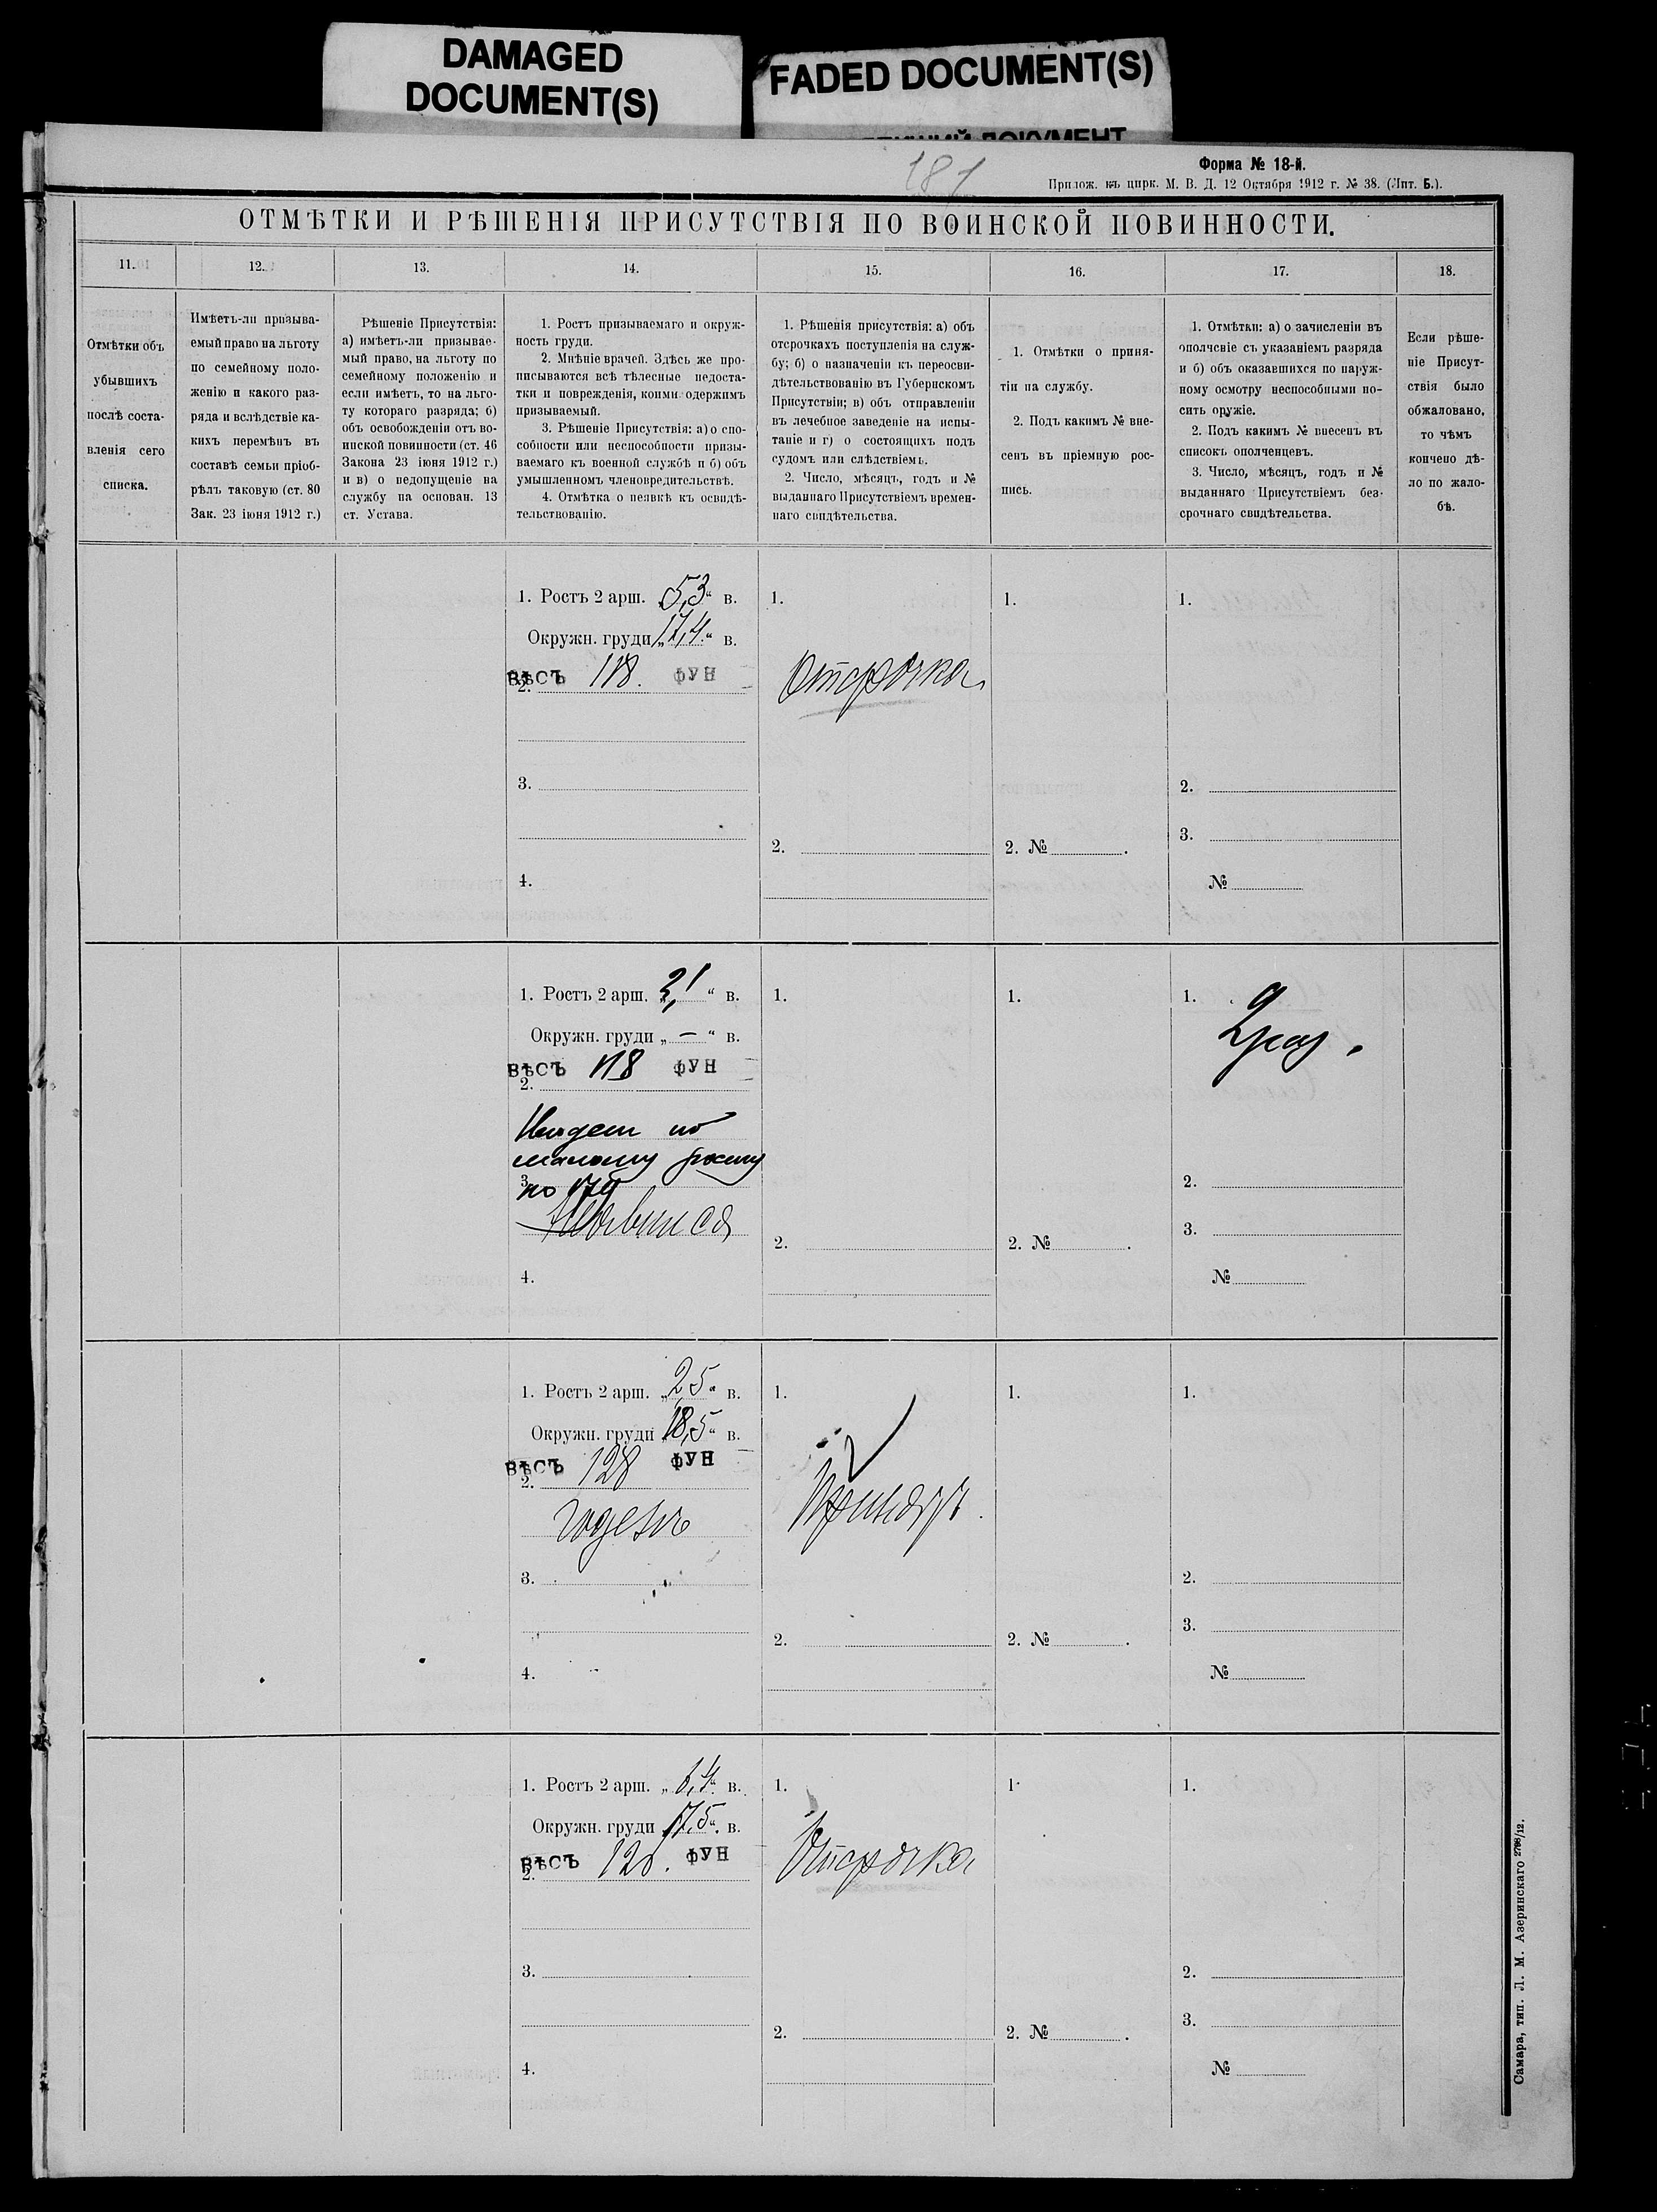 DAMAGED
DOCUMENT(S)
FADED DOCUMENT(S)
ДОКУМЕНТ
181
Форма № 18-й.
Прилож. къ цирк. М. В. Д. 12 Октября 1912 г. № 38. (Лит. Б.).
ОТМѢТКИ И РѢШЕНІЯ ПРИСУТСТВІЯ ПО ВОИНСКОЙ ПОВИННОСТИ.
11.
12.
13.
14.
15.
16.
17.
18.
Отмѣтки объ
убывшихъ
послѣ соста-
вленія сего
списка.
Имѣетъ-ли призыва-
емый право на льготу
по семейному поло-
женію и какого раз-
ряда и вслѣдствіе ка-
кихъ перемѣнъ въ
составѣ семьи пріоб-
рѣлъ таковую (ст. 80
Зак. 23 іюня 1912 г.)
Рѣшеніе Присутствія:
а) имѣетъ-ли призывае-
мый право, на льготу по
семейному положенію и
если имѣетъ, то на льго-
ту котораго разряда; б)
объ освобожденіи отъ во-
инской повинности (ст. 46
Закона 23 іюня 1912 г.)
и в) о недопущеніе на
службу на основан. 13
ст. Устава.
1. Ростъ призываемаго и окруж-
ность груди.
2. Мнѣніе врачей. Здѣсь же про-
писываются всѣ тѣлесные недоста-
тки и поврежденія, коими одержимъ
призываемый.
3. Рѣшеніе Присутствія: а) о спо-
собности или неспособности призы-
ваемаго къ военной службѣ и б) объ
умышленномъ членовредительствѣ.
4. Отмѣтка о неявкѣ къ освидѣ-
тельствованію.
1. Рѣшенія присутствія: а) объ
отсрочкахъ поступленія на служ-
бу; б) о назначеніи къ переосви-
дѣтельствованію въ Губернскомъ
Присутствіи; в) объ отправленіи
въ лечебное заведеніе на испы-
таніе и г) о состоящихъ подъ
судомъ или слѣдствіемъ.
2. Число, мѣсяцъ, годъ и №
выданнаго Присутствіемъ времен-
наго свидѣтельства.
1. Отмѣтки о приня-
тіи на службу.
2. Подъ какимъ № вне-
сенъ въ пріемную рос-
пись.
1. Отмѣтки: а) о зачисленіи въ
ополченіе съ указаніемъ разряда
и б) объ оказавшихся по наруж-
ному осмотру неспособными но-
сить оружіе.
2. Подъ какимъ № внесенъ въ
списокъ ополченцевъ.
3. Число, мѣсяцъ, годъ и №
выданнаго Присутствіемъ без-
срочнаго свидѣтельства.
Если рѣше-
ніе Присут-
ствія было
обжаловано,
то чѣмъ
кончено дѣ-
ло по жало-
бѣ.
1. Ростъ 2 арш. „5,3“ в.
Окружн. груди „17,4“ в.
вѣсъ 118. фун
2.
3.
4.
1.
Отсрочка
2.
1.
2. №
1.
2.
3.
№
1. Ростъ 2 арш. „2,1“ в.
Окружн. груди „—“ в.
вѣсъ 118 фун
2.
малому росту
3.
по
4.
1.
2.
1.
2. №
1.
2 раз.
2.
3.
№
1. Ростъ 2 арш. „2,5“ в.
Окружн. груди „18,5“ в.
вѣсъ 128 фун
2.
годенъ
3.
4.
1.
Принятъ.
2.
1.
2. №
1.
2.
3.
№
1. Ростъ 2 арш. „6,4“ в.
Окружн. груди „17,5“ в.
вѣсъ 120. фун
2.
3.
4.
1.
Отсрочка
2.
1.
2. №
1.
2.
3.
№
Самара, тип. Л. М. Азеринскаго 2798/12.